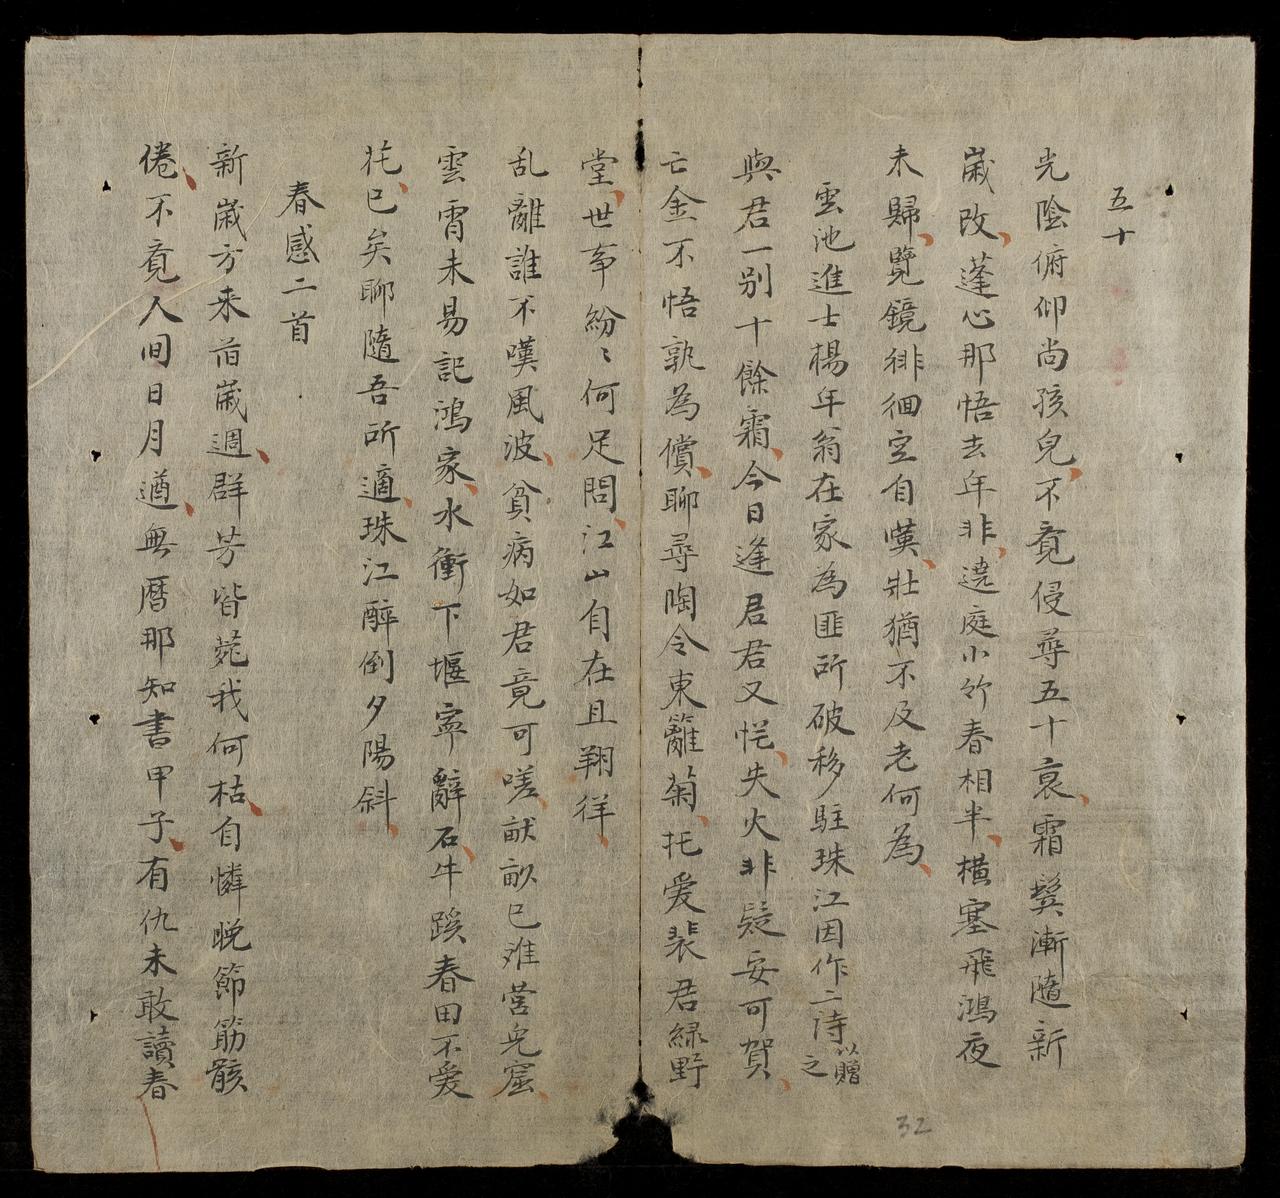 五十
光陰俯仰尚孩兒不覔侵尋五十衰霜鬓漸隨新
嵗改蓬心那悟去年非遶庭小竹春相半橫塞飛鴻夜
未歸覽鏡徘徊空自嘆壯猶不及老何為
雲池進士楊年翁在家為匪所破移駐珠江因作二詩以贈之
與君一别十餘霜今日逢君君又恾失火非疑妄可賀
亡金不悟孰為償聊尋陶令東籬菊托爱裴君緑野
堂世事紛〻何足問江山自在且翔徉
乱離誰不嘆風波貧病如君竟可嗟畎畝已难营兔窟
雲霄未易記鴻家水衝下堰寧辭石牛蹊春田不爱
花已矣聊隨吾所適珠江醉倒夕陽斜
春感二首
新嵗方来旧嵗週群芳皆菀我何枯自憐晚節筋骸
倦不覔人间日月遒無曆那知書甲子有仇未敢讀春
32